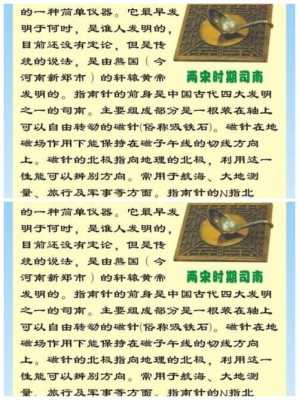 的一种简单仪器。它最早发
明于何时，是谁人发明的，
目前还没有定论，但是传
统的说法，是由熊国（今
河南新郑市）的轩辕黄帝
两宋时期司南
发明的。指南针的前身是中国古代四大发明
之一的司南。主要组成部分是一根装在轴上
可以自由转动的磁针(俗称吸铁石)。磁针在地
磁场作用下能保持在磁子午线的切线方向
上。磁针的北极指向地理的北极，利用这一
性能可以辨别方向。常用于航海、大地测
量、旅行及军事等方面。指南针的N指北
的一种简单仪器。它最早发
明于何时，是谁人发明的，
目前还没有定论，但是传
统的说法，是由熊国（今
河南新郑市）的轩辕黄帝
两宋时期司南
发明的。指南针的前身是中国古代四大发明
之一的司南。主要组成部分是一根装在轴上
可以自由转动的磁针(俗称吸铁石)。磁针在地
磁场作用下能保持在磁子午线的切线方向
上。磁针的北极指向地理的北极，利用这一
性能可以辨别方向。常用于航海、大地测
量、旅行及军事等方面。指南针的N指北